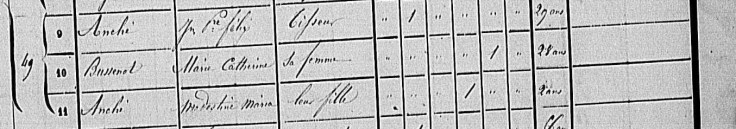 9 Anché Jn Pre félix Tisseur " 1 " " " " 29 ans
49 10 Bussenot Marie Catherine Sa femme " " " " 1 " 28 ans
11 Anché Modestine Maria leur fille " " " 1 " " 2 ans